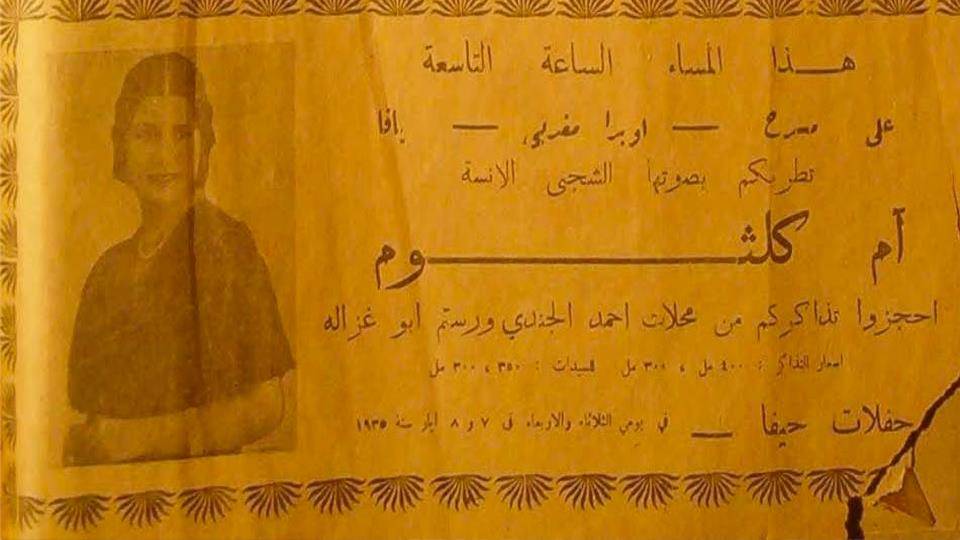 هذا المساء الساعة التاسعة
على مسرح — اوبرا مغربي — يافا
تطربكم بصوتها الشجي الانسة
أم كلثوم
احجزوا تذاكركم من محلات احمد الجندي ورستم ابو غزاله
اسعار التذاكر : ٤٠٠ مل ، ٣٠٠ مل للسيدات : ٣٥٠ ، ٣٠٠ مل
حفلات حيفا — في يومي الثلاثاء والاربعاء في ٧ و ٨ ايار سنة ١٩٣٥